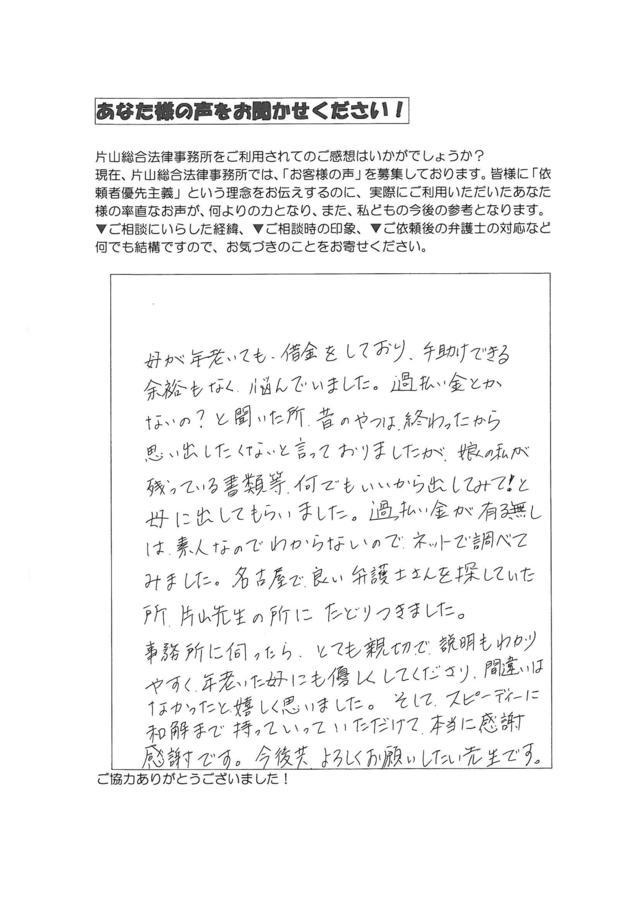 あなた様の声をお聞かせください！
片山総合法律事務所をご利用されてのご感想はいかがでしょうか？
現在、片山総合法律事務所では、「お客様の声」を募集しております。皆様に「依
頼者優先主義」という理念をお伝えするのに、実際にご利用いただいたあなた
様の率直なお声が、何よりの力となり、また、私どもの今後の参考となります。
▼ご相談にいらした経緯、▼ご相談時の印象、▼ご依頼後の弁護士の対応など
何でも結構ですので、お気づきのことをお寄せください。
母が年老いても、借金をしており、手助けできる
余裕もなく、悩んでいました。過払い金とか
ないの？と聞いた所、昔のやつは、終わったから
思い出したくないと言っておりましたが、娘の私が
残っている書類等、何でもいいから出してみて！と
母に出してもらいました。過払い金が有る無し
は、素人なのでわからないので、ネットで調べて
みました。名古屋で、良い弁護士さんを探していた
所、片山先生の所に たどりつきました。
事務所に伺ったら、とても親切で、説明もわかり
やすく、年老いた母にも優しくしてくださり、間違いは
なかったと嬉しく思いました。そして、スピーディーに
和解まで持っていっていただけて、本当に感謝
感謝です。今後共、よろしくお願いしたい先生です。
ご協力ありがとうございました！